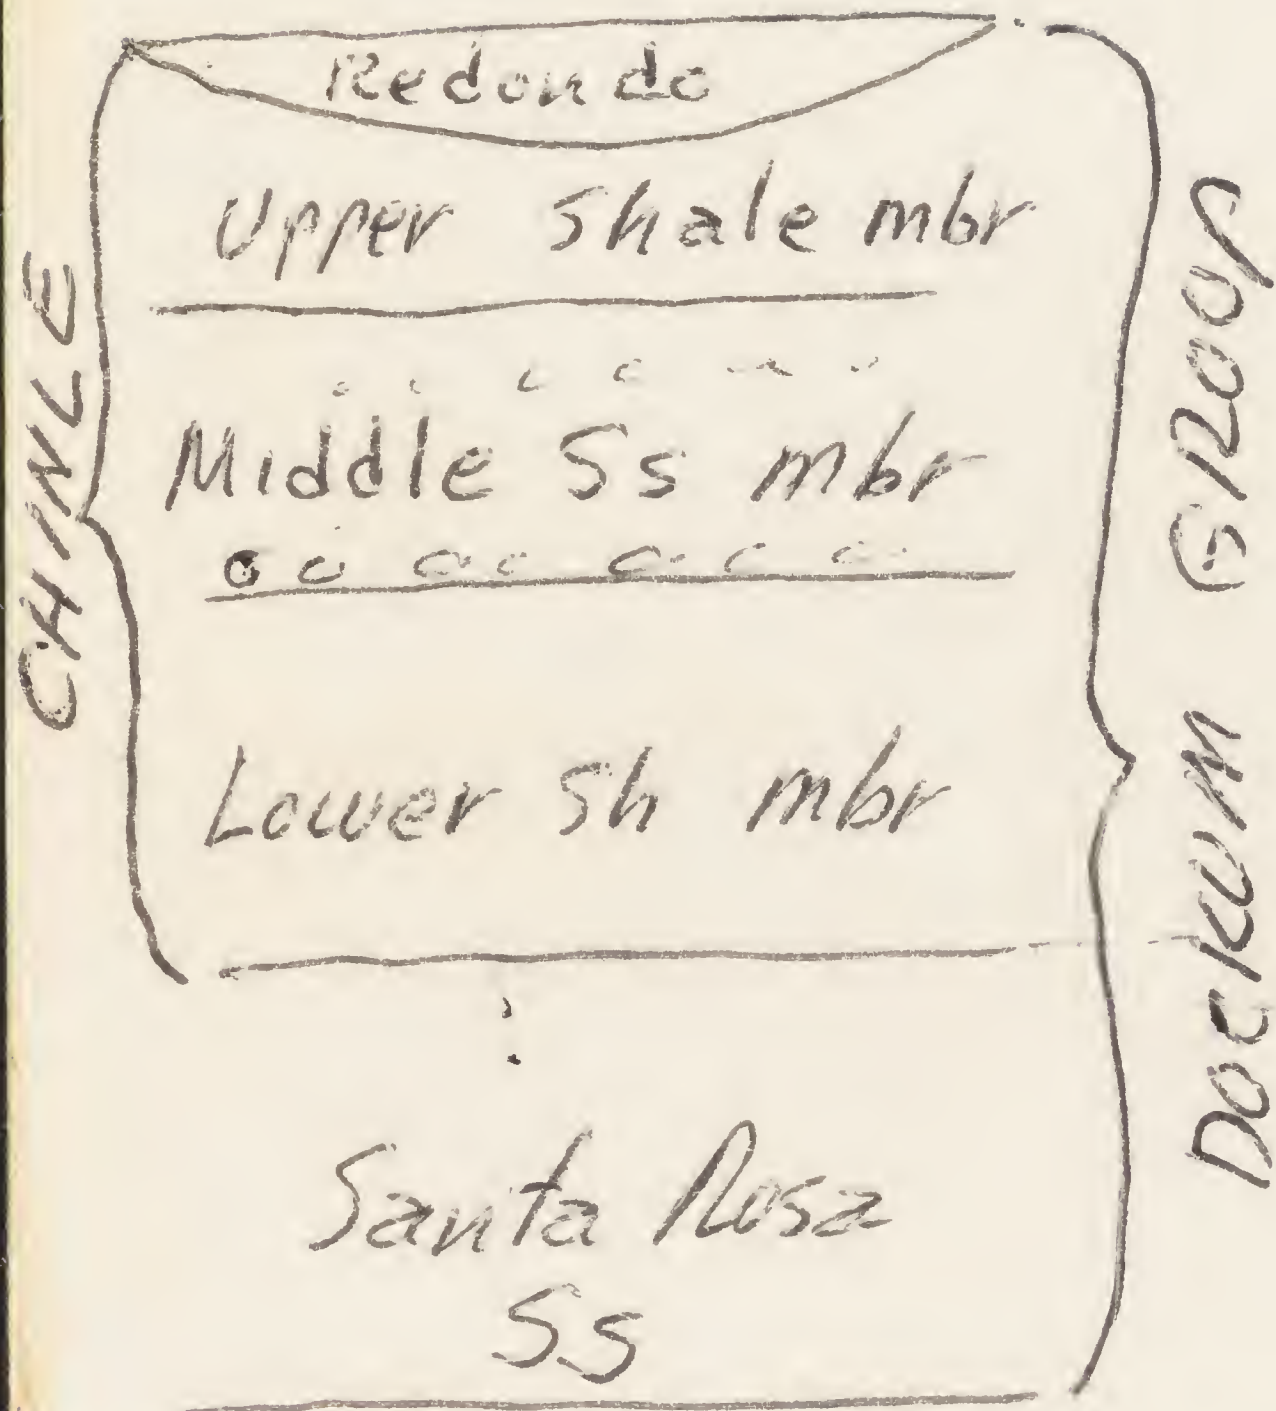 Redondo
Upper Shale mbr
Middle Ss mbr
Lower Sh mbr
Santa Rosa
Ss
CHINLE
DOCKUM GROUP